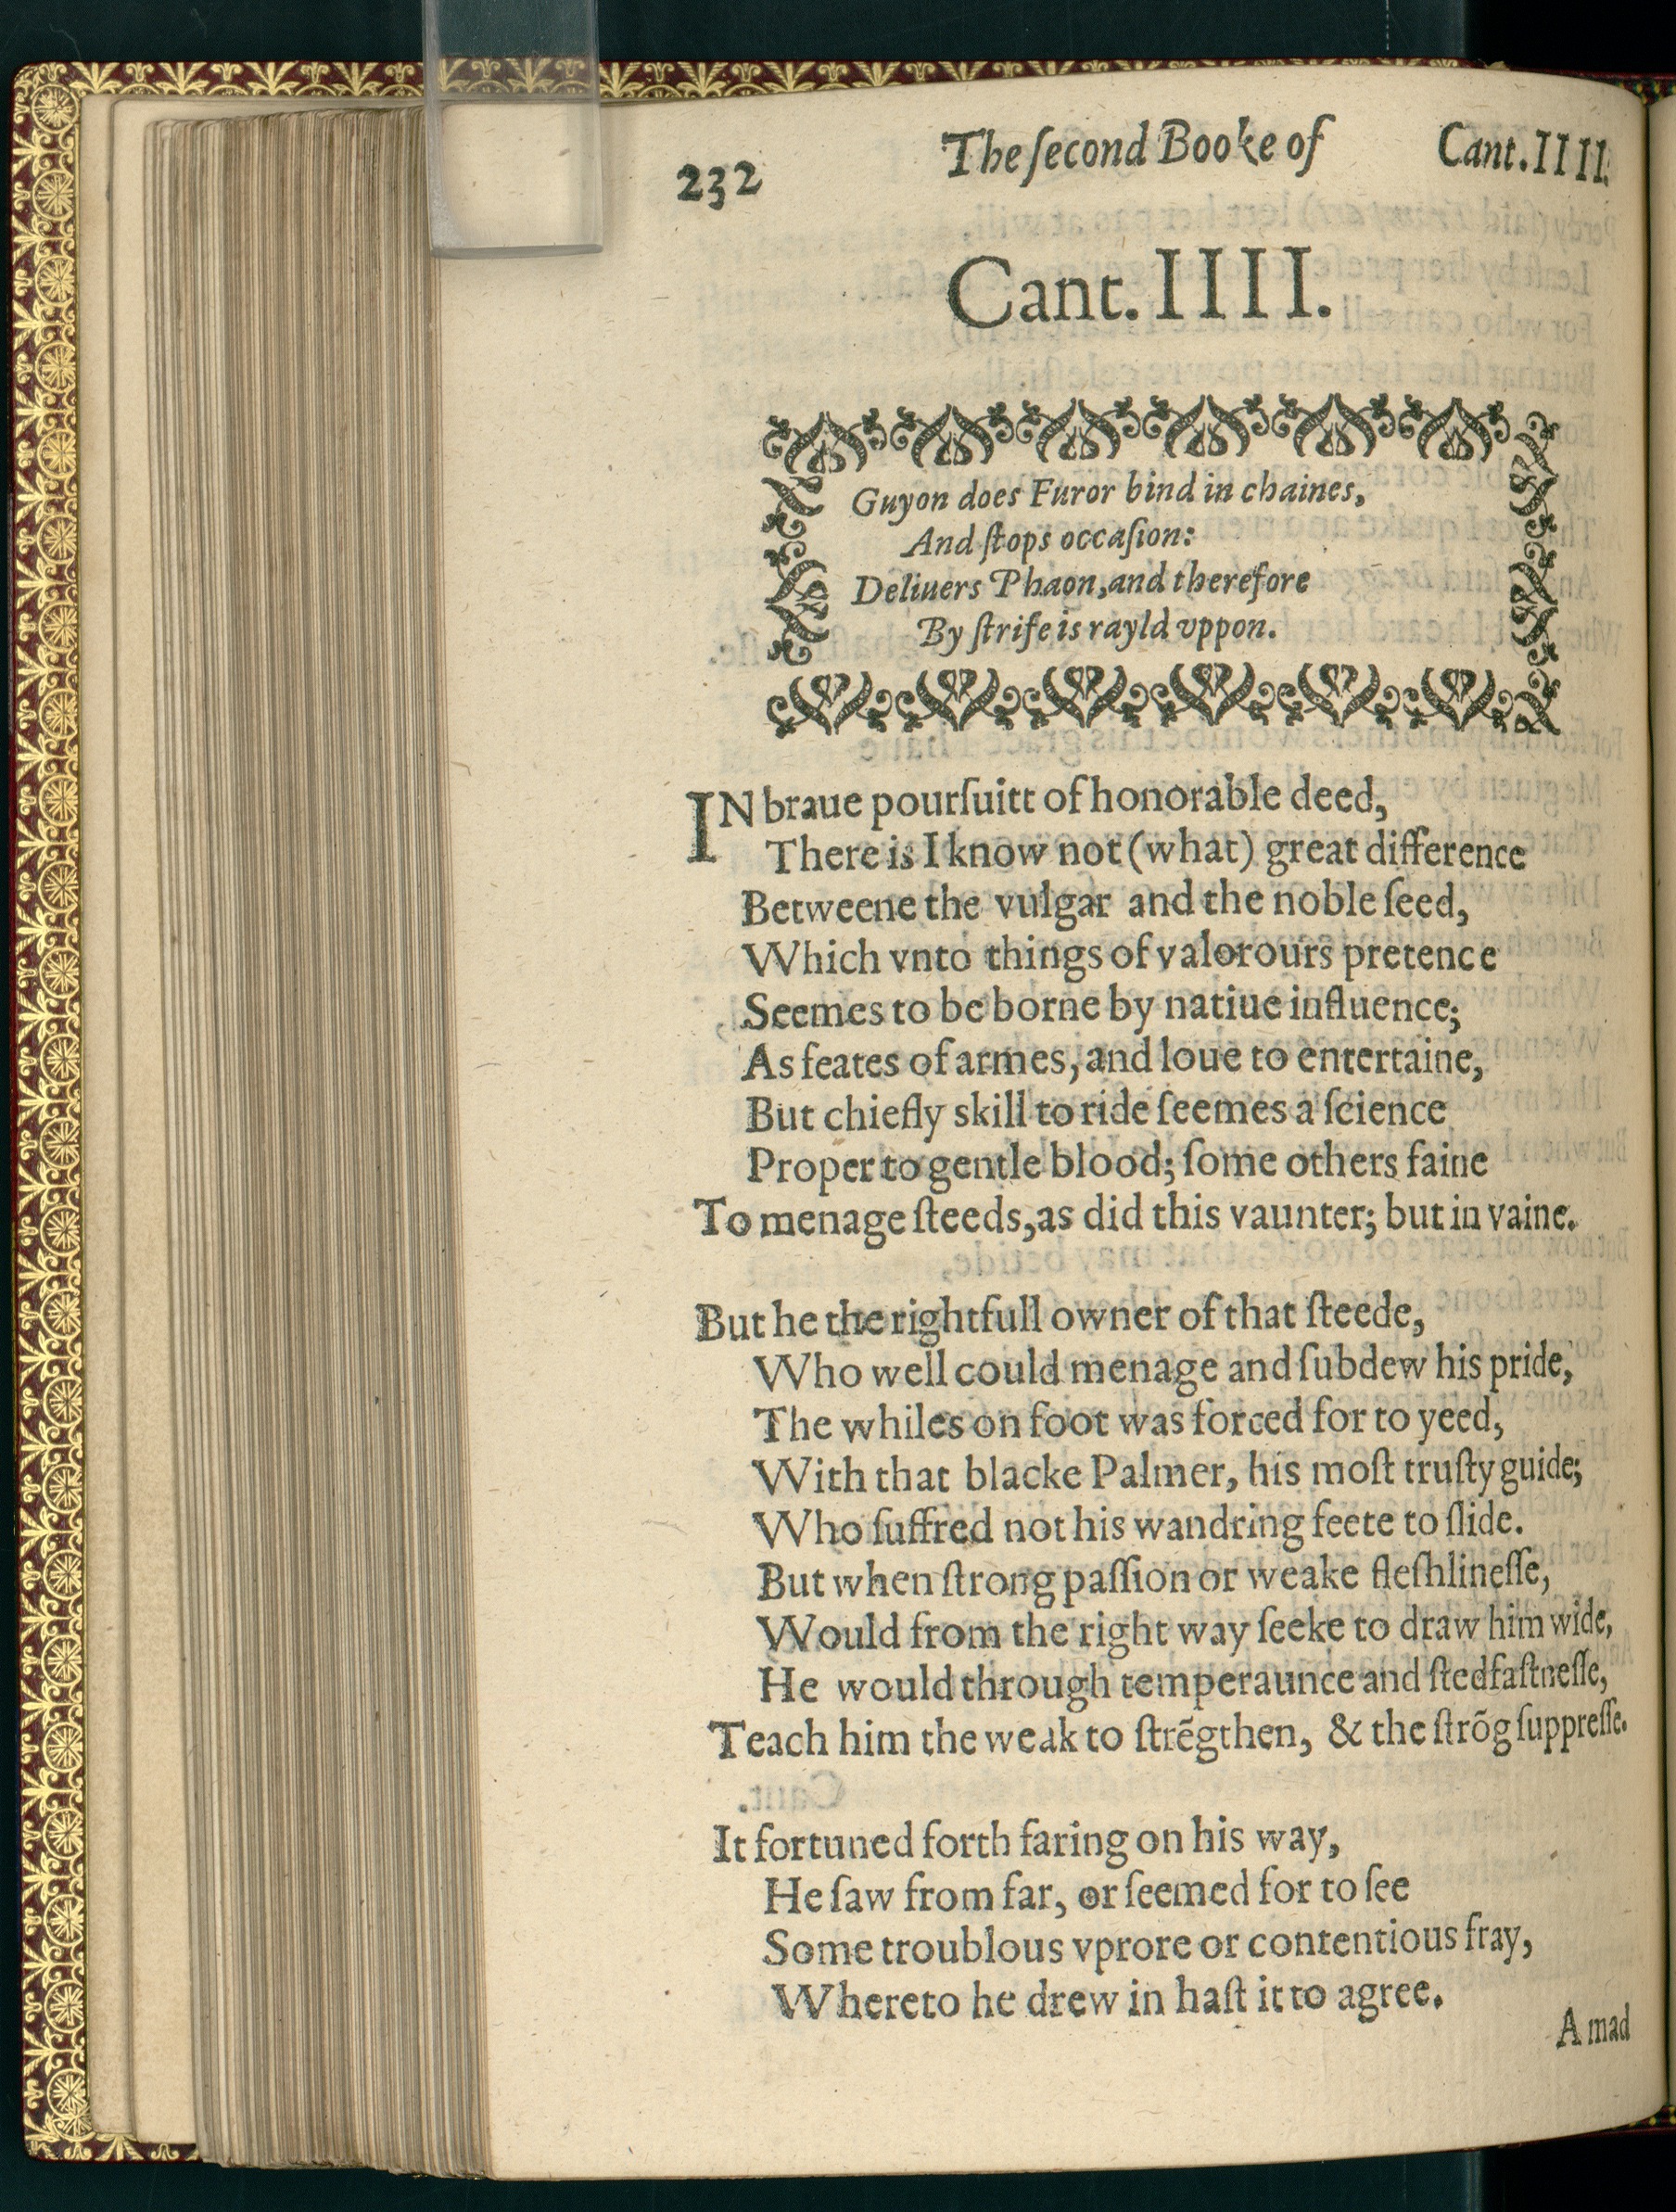 232 The ſecond Booke of Cant. IIII.
Cant. IIII.
Guyon does Furor bind in chaines,
And ſtops occaſion:
Deliuers Phaon, and therefore
By ſtrife is rayld vppon.
IN braue pourſuitt of honorable deed,
There is I know not (what) great difference
Betweene the vulgar and the noble ſeed,
Which vnto things of valorours pretence
Seemes to be borne by natiue influence;
As feates of armes, and loue to entertaine,
But chiefly skill to ride ſeemes a ſcience
Proper to gentle blood; ſome others faine
To menage ſteeds, as did this vaunter; but in vaine.
But he the rightfull owner of that ſteede,
Who well could menage and ſubdew his pride,
The whiles on foot was forced for to yeed,
With that blacke Palmer, his moſt truſty guide;
Who ſuffred not his wandring feete to ſlide.
But when ſtrong paſſion or weake fleſhlineſſe,
Would from the right way ſeeke to draw him wide,
He would through temperaunce and ſtedfaſtneſſe,
Teach him the weak to ſtrẽgthen, & the ſtrõg ſuppreſſe.
It fortuned forth faring on his way,
He ſaw from far, or ſeemed for to ſee
Some troublous vprore or contentious fray,
Whereto he drew in haſt it to agree.
A mad